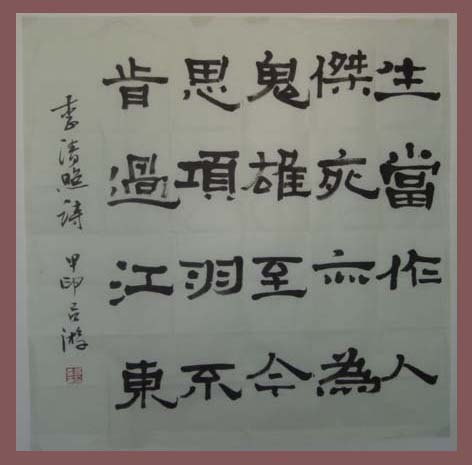 生當作人
傑死亦為
鬼雄至今
思項羽不
肯過江東
李清照詩